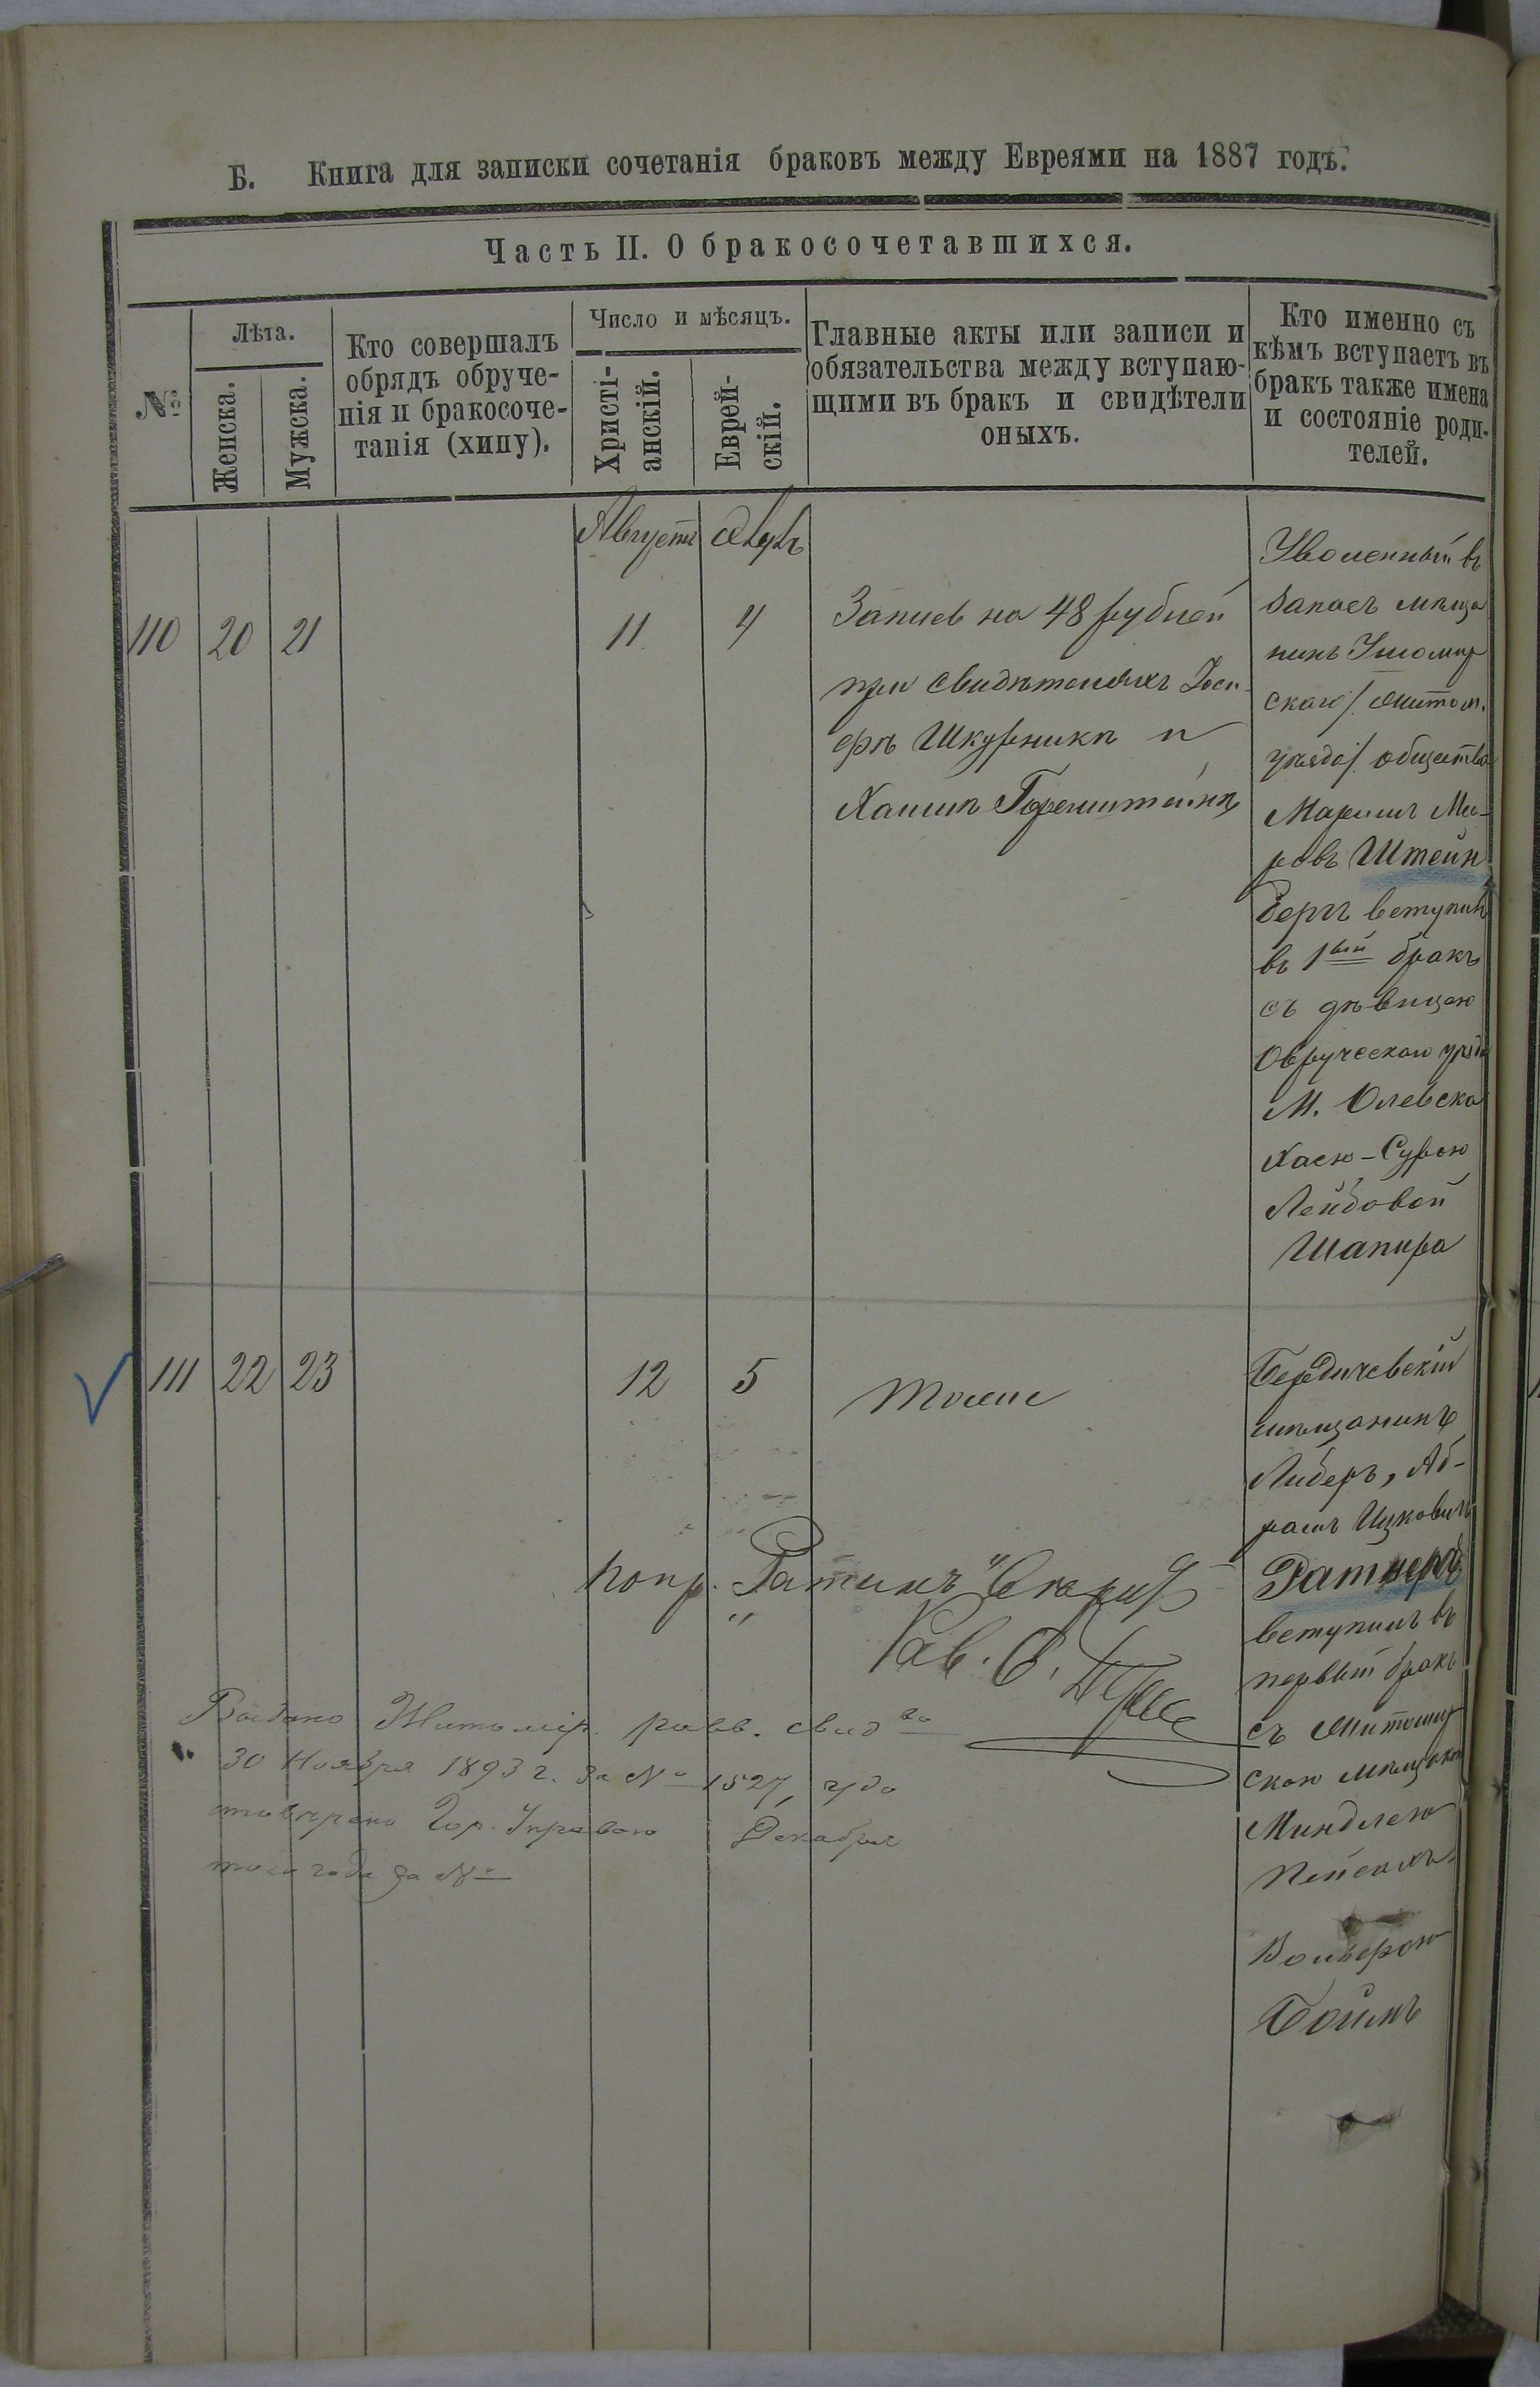 Б. Книга для записки сочетанія браковъ между Евреями на 1887 годъ.
Часть II. О бракосочетавшихся.
№
Лѣта.
Женска.
Мужска.
Кто совершалъ
обрядъ обруче-
нія и бракосоче-
танія (хипу).
Число и мѣсяцъ.
Христі-
анскій.
Еврей-
скій.
Главные акты или записи и
обязательства между вступаю-
щими въ бракъ и свидѣтели
оныхъ.
Кто именно съ
кѣмъ вступаетъ въ
бракъ также имена
и состояніе роди-
телей.
Августъ
110 20 21 11 4
Запись на 48 рублей
при свидѣтеляхъ Іос
Шкурника и
Хаима Горенштейна
Уволенный въ
запасъ мѣща
нинъ Ушомир
скаго /. Житом.
уѣзда /. общества
Мее-
ровъ Штейн
бергъ вступилъ
въ 1вый бракъ
съ дѣвицею
Овручскаго уѣзда
М. Олевска
Хаею-Сурою
Лейбовой
Шапира
111 22 23 12 5 тоже
Бердичевскій
мѣщанинъ
Либеръ, Аб-
рамъ Ицковичъ
Ратнеръ
вступилъ въ
первый бракъ
съ Житомир
скою мѣщанкою
Миндлею
Пейсахъ-
Вольфою
Боимъ
попр.
Рав.
Выдано Житомір. равв. свидво
30 Ноября 1893 г. за № 1527,
Гор. Управою Декабря
того года за №